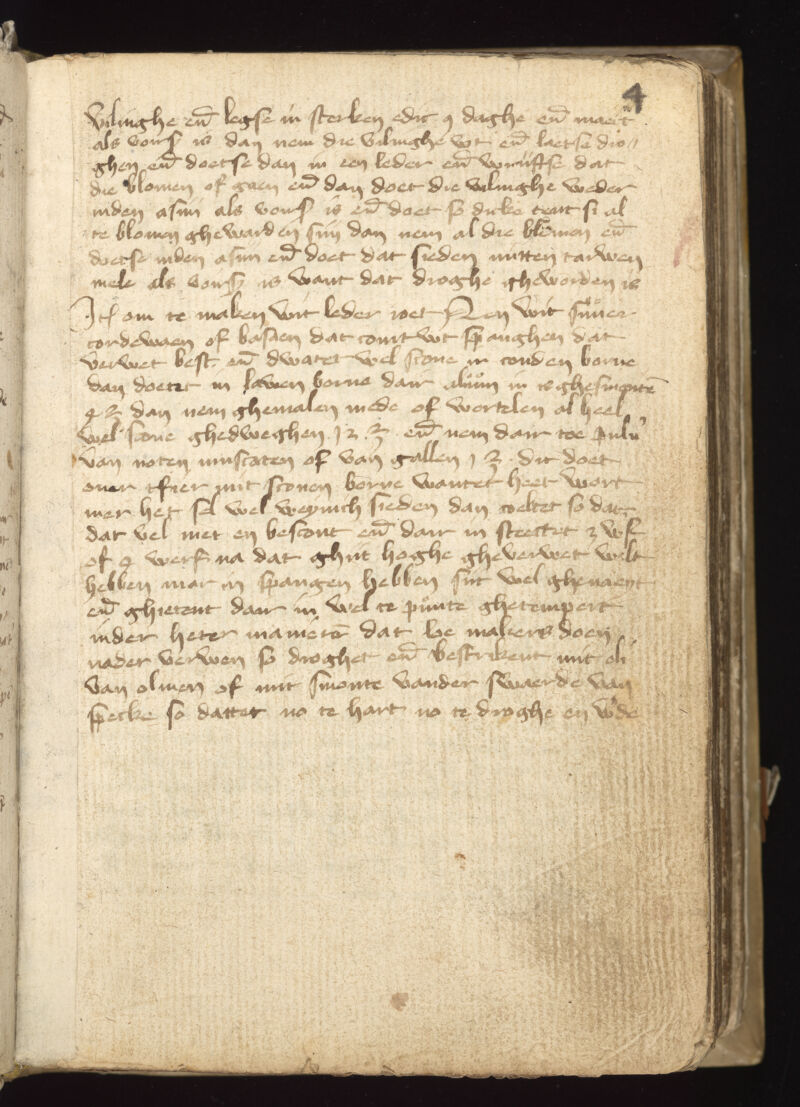 4
vilinghe eñ legse in sterken edic 9 daghe eñ maect
als vors is dan nem die vilinghe wt eñ laetse dro//
ghen eñ doetse dan in een leder eñ wriuftse dat
die blomen of gaen eñ dan doet die vilinghe weder
inden asiin als vors is eñ doet so dicke tent si al
te blomen ghewarden siin dan nem al die blomen eñ
doetse inden asiin eñ doet dat sieden mitten tarwen
mele als vors is want dat droghe gheworden is
Itē om te maken wit leder roet Nem wit suuer
cordewaen of basaen dat comt wt spanghen dat
verwet best eñ dwatet wel scone in couden borne
dan doetet in lawen borne dair aluun in is ghesmontē
dan nem ghemalen mede of wortelen al heel
wel scone ghedweghen eñ nem dair toe
van noten muscaten of van gallen 1 ʒ dit doet
ouer tfier mit sconen borne wantet heet wort
mer het sel wel weynich sieden dan coeltet so dat
dat vel niet en bescout eñ dair in steectet 3 w̄f
of 4 werf na dat ghiit hoghe gheverwet wilt
hebben mar in spangen hebben siit wel ghenaeyt
eñ ghietent dair in wel te pūnte ghetempert
inder heter manierē dat loe makers doen
nader verwen so droghet eñ bestrikent mit oli
van oliuen of mit smoute vander swaerde van
specke so dattet no te hart no te droghe en w̄de